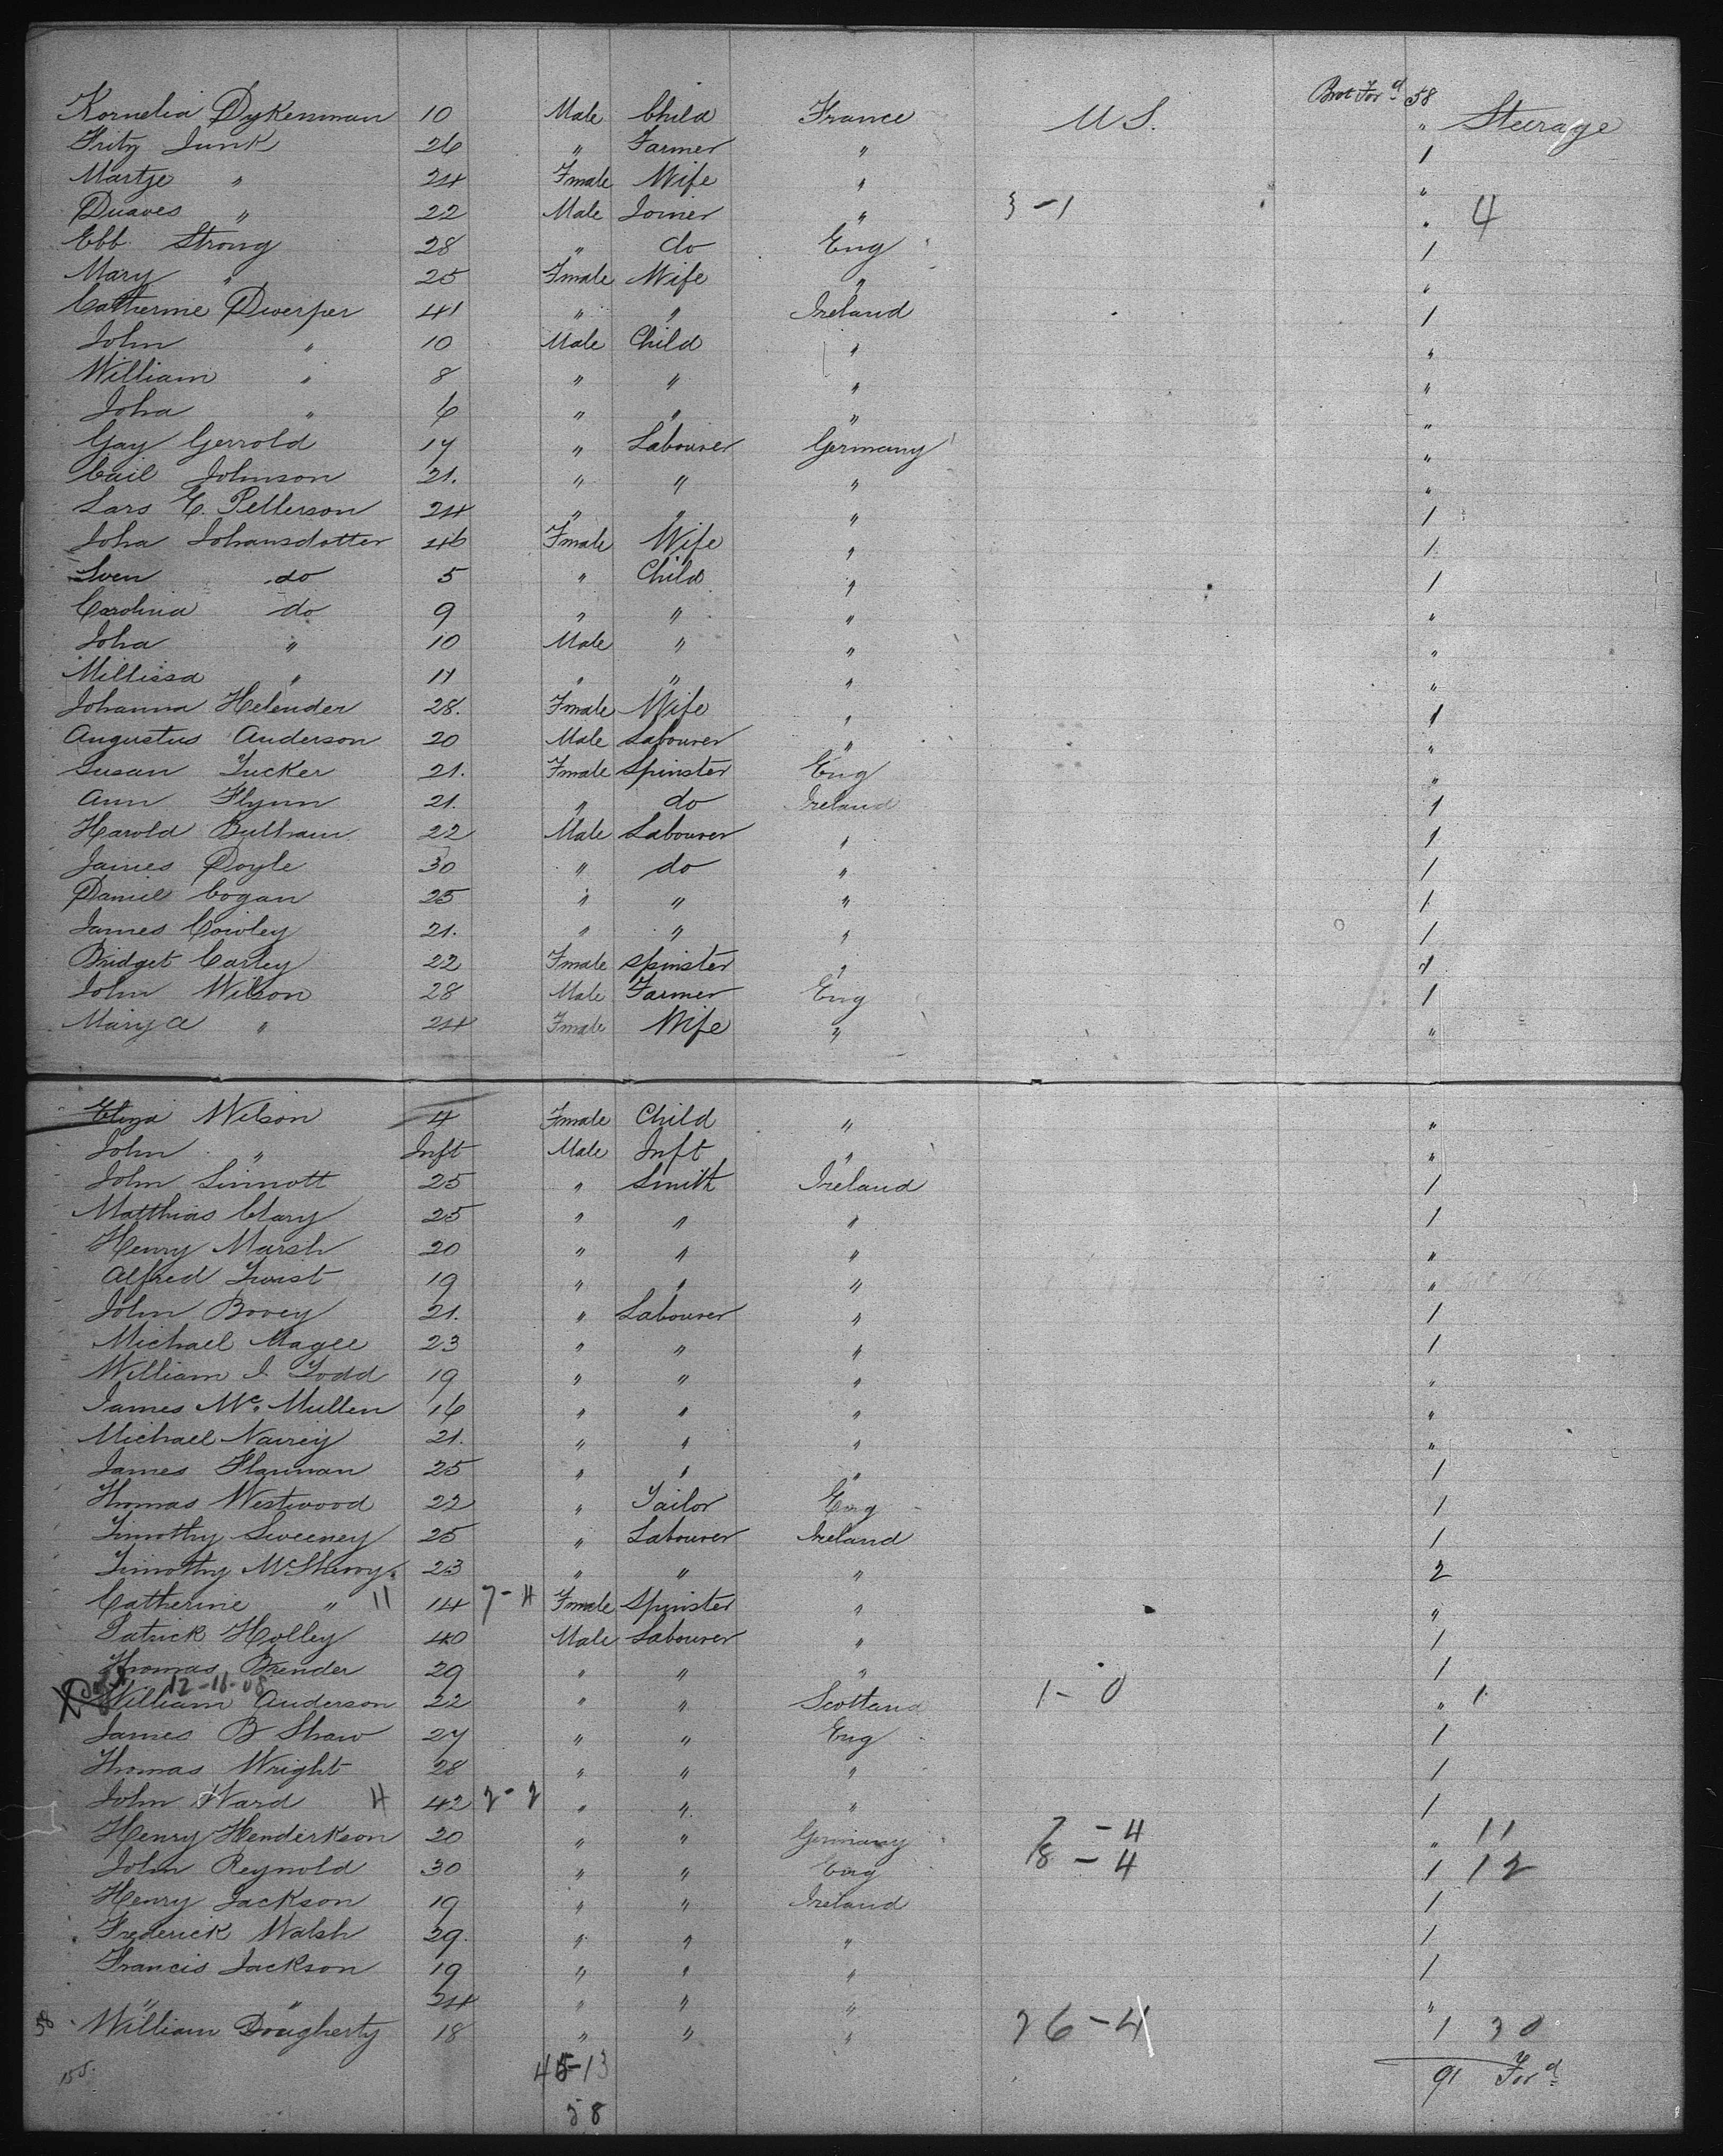 Brot Ford 58
Kornelia Dykensman 10 Male Child France U S. " Steerage
Fritz Junk 26 " Farmer " 1
Martje " 24 Fmale Wife " "
Duaves " 22 Male Joiner " 3-1 " 4
Ebb Strong 28 " do Eng 1
Mary " 25 Fmale Wife " "
Catherine Dwerper 41 " " Ireland 1
John " 10 Male Child " "
William " 8 " " " "
Joha " 6 " " " "
Gay Gerrold 17 " Labourer Germany "
Cail Johnson 21. " " " "
Lars E. Petterson 24 " " " 1
Joha Johansdotter 46 Fmale Wife " 1
Sven do 5 " Child " 1
Carolina do 9 " " " "
Joha " 10 Male " " "
Millissa " 11 " " " "
Johanna Helender 28. Fmale Wife " 1
Augustus Anderson 20 Male Labourer " "
Susan Tucker 21. Fmale Spinster Eng "
Ann Flynn 21. " do Ireland 1
Harold Bulham 22 Male Labourer " 1
James Doyle 30 " do " 1
Daniel Cogan 25 " " " 1
James Cowley 21. " " " 1
Bridget Carley 22 Fmale Spinster " 1
John Wilson 28 Male Farmer Eng 1
Mary A " 24 Fmale Wife " "
Eliza Wilson 4 Fmale Child " "
John " Inft Male Inft " "
John Sinnott 25 " Smith Ireland 1
Matthias Clary 25 " " " 1
Henry Marsh 20 " " " "
Alfred Twist 19 " " " "
John Bovey 21. " Labourer " 1
Michael Magee 23 " " " 1
William J Todd 19 " " " "
James Mc. Mullen 16 " " " "
Michael Nairey 21. " " " "
James Flannan 25 " " " 1
Thomas Westwood 22 " Tailor Eng 1
Timothy Sweeney 25 " Labourer Ireland 1
Timothy McSherry 23 " " " 2
Catherine " 11 14 7-4 Fmale Spinster " "
Patrick Holley 40 Male Labourer " 1
Thomas Brender 29 " " " 1
12-16-08
William Anderson 22 " " Scotland 1-0 " 1
James B Shaw 27 " " Eng 1
Thomas Wright 28 " " " 1
John Ward 4 42 2-2 " " " 1
Henry Henderkson 20 " " Germany 7-4 " 11
John Reynold 30 " " Eng 8-4 1 12
Henry Jackson 19 " " Ireland 1
Frederick Walsh 29. " " " 1
Francis Jackson 19 " " " 1
" " 24 " " " "
58 William Dougherty 18 " " " 26-4 1 30
155. 45-13 91 Ford
58